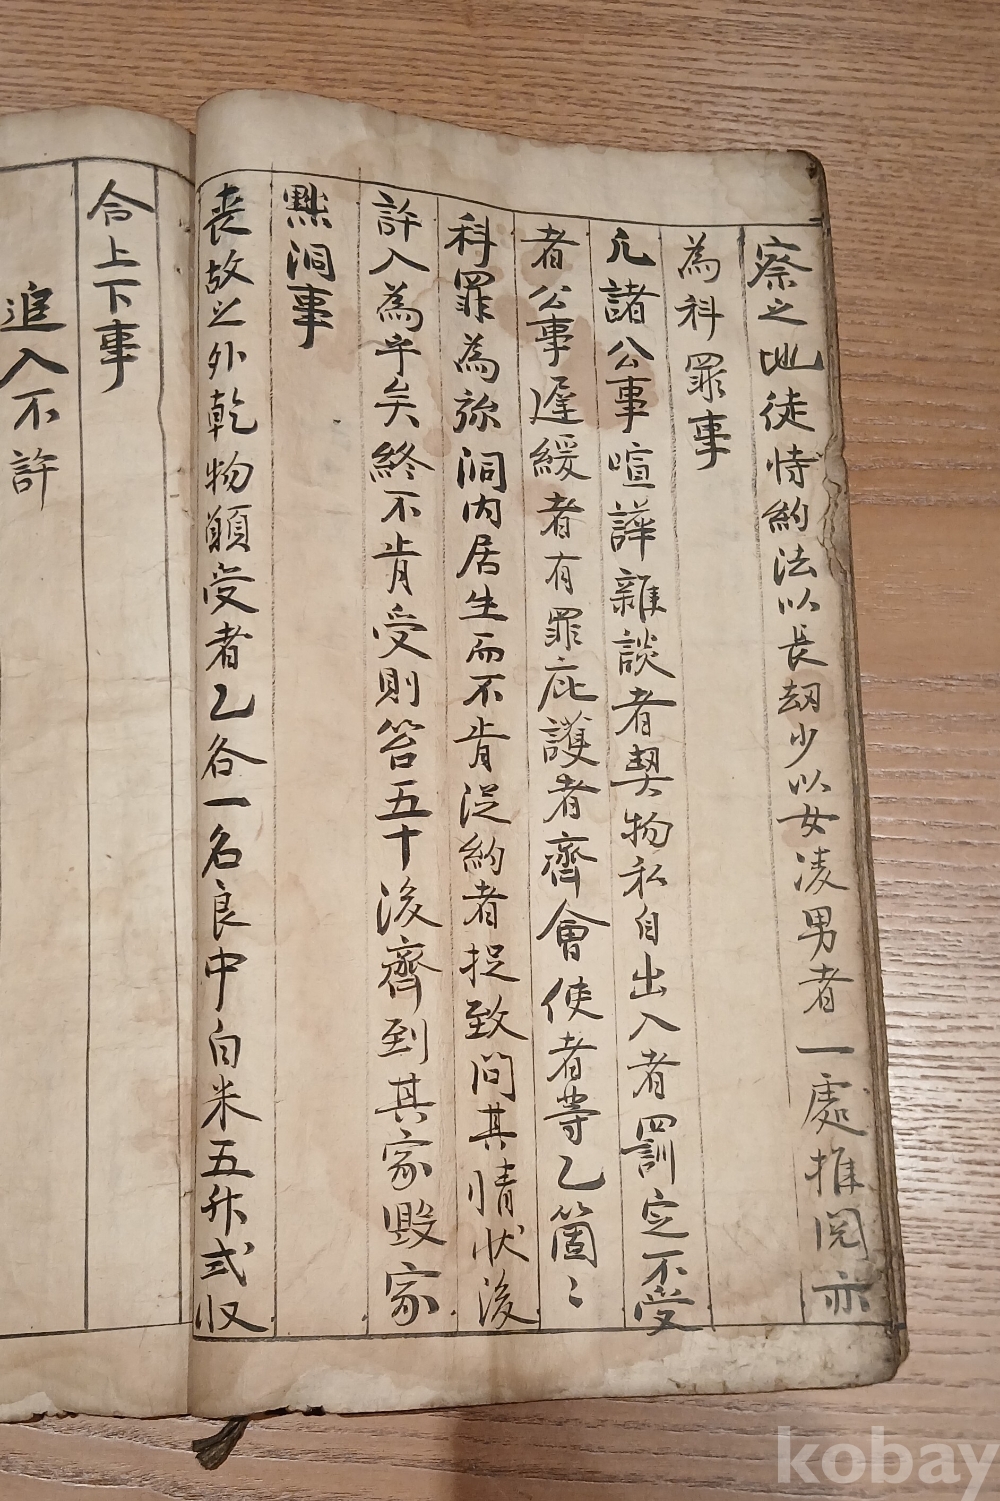 察之地徒恃約法以長劫少以女凌男者一處推閱亦
為科罪事
凡諸公事喧譁雜談者契物私自出入者罰定不受
者公事遲緩者有罪庇護者齊會使者等乙箇〻
科罪為弥洞內居生而不肯従約者捉致問其情状後
許入為乎矣終不肯受則笞五十後齊到其家毀家
黜洞事
喪故之外乾物願受者乙各一名良中白米五升式収
合上下事
追入不許
kobay